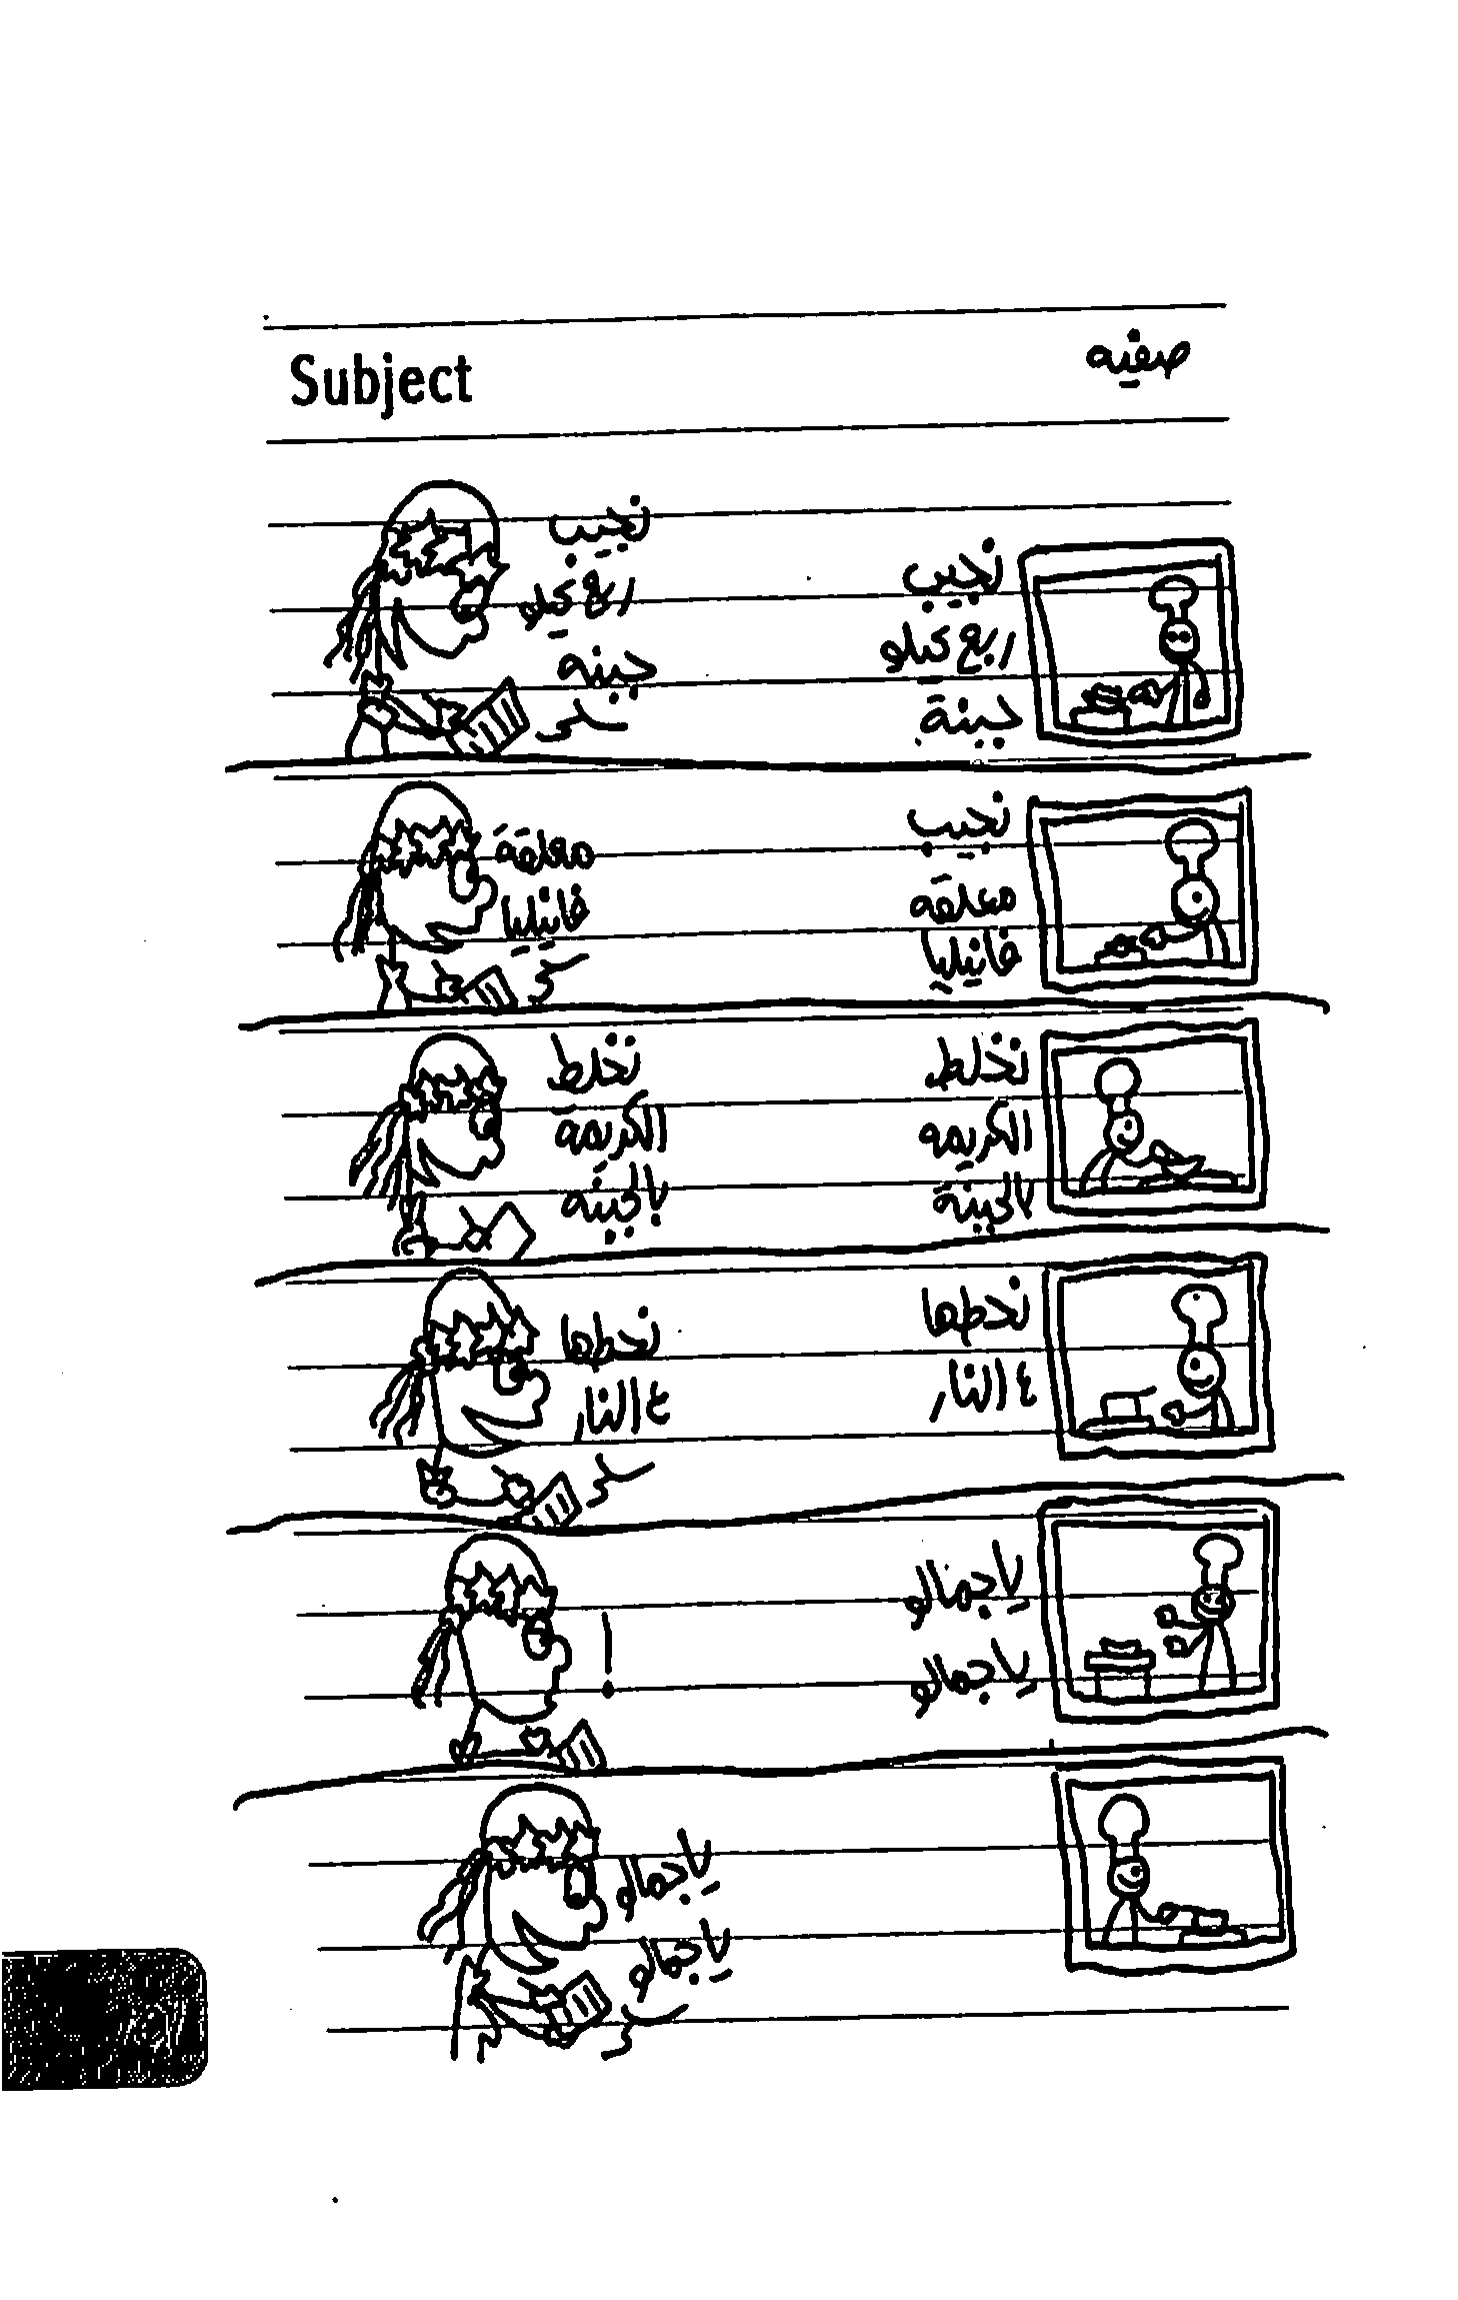 Subject
صفيه
نجيب
ربع كيلو
جبنة
نجيب
ربع كيلو
جبنه
نجيب
معلقة
فانيليا
معلقة
فانيليا
نخلط
الكريمه
بالجبنة
نخلط
الكريمة
بالجبنه
نحطها
ع النار
نحطها
ع النار
يا جمالو
يا جمالو
!
يا جمالو
يا جمالو